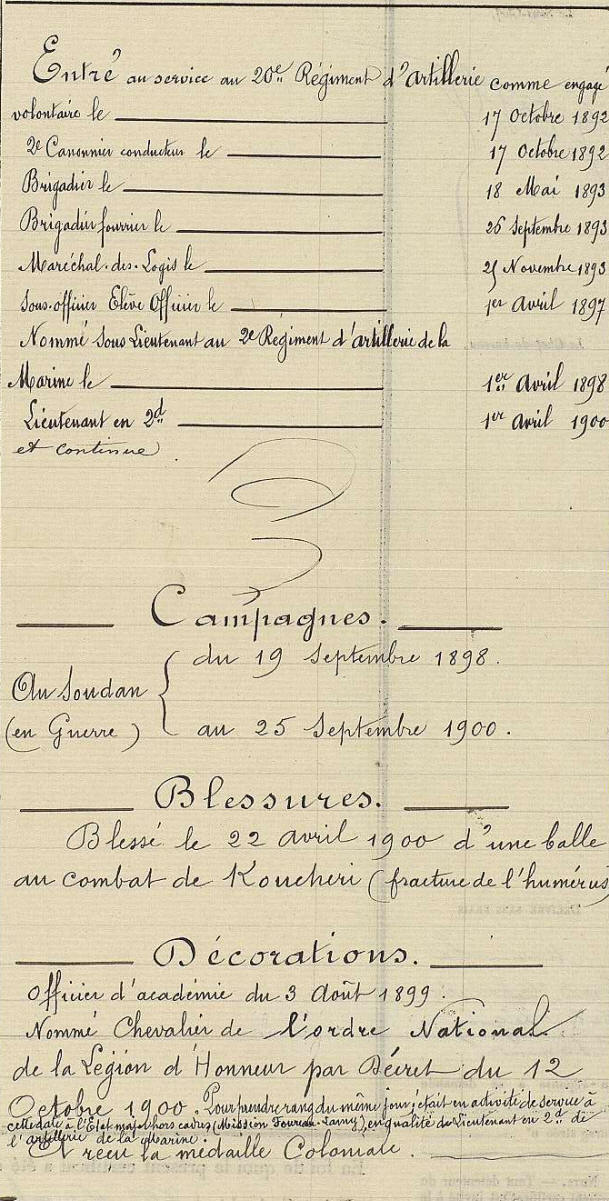 Entré au service au 20e Régiment d'Artillerie comme engagé
volontaire le 17 Octobre 1892
2e Canonnier conducteur le 17 Octobre 1892
Brigadier le 18 Mai 1893
Brigadier fourrier le 26 Septembre 1893
Maréchal-des-Logis le 21 Novembre 1893
Sous-officier Elève Officier le 1er Avril 1897
Nommé Sous Lieutenant au 2e Régiment d'artillerie de la
Marine le 1er Avril 1898
Lieutenant en 2d 1er Avril 1900
et continue
Campagnes.
du 19 Septembre 1898.
Au Soudan
(en Guerre)
au 25 Septembre 1900.
Blessures.
Blessé le 22 avril 1900 d'une balle
au combat de Koucheri (fracture de l'humérus)
Décorations.
Officier d'académie du 3 Août 1899.
Nommé Chevalier de l'ordre National
de la Légion d'Honneur par Décret du 12
Octobre 1900. Pour prendre rang du même jour; était en activité de service à
cette date à l'Etat major hors cadres (Mission Foureau-Lamy), en qualité de Lieutenant en 2d de
l'artillerie de la Marine.
A reçu la médaille Coloniale.